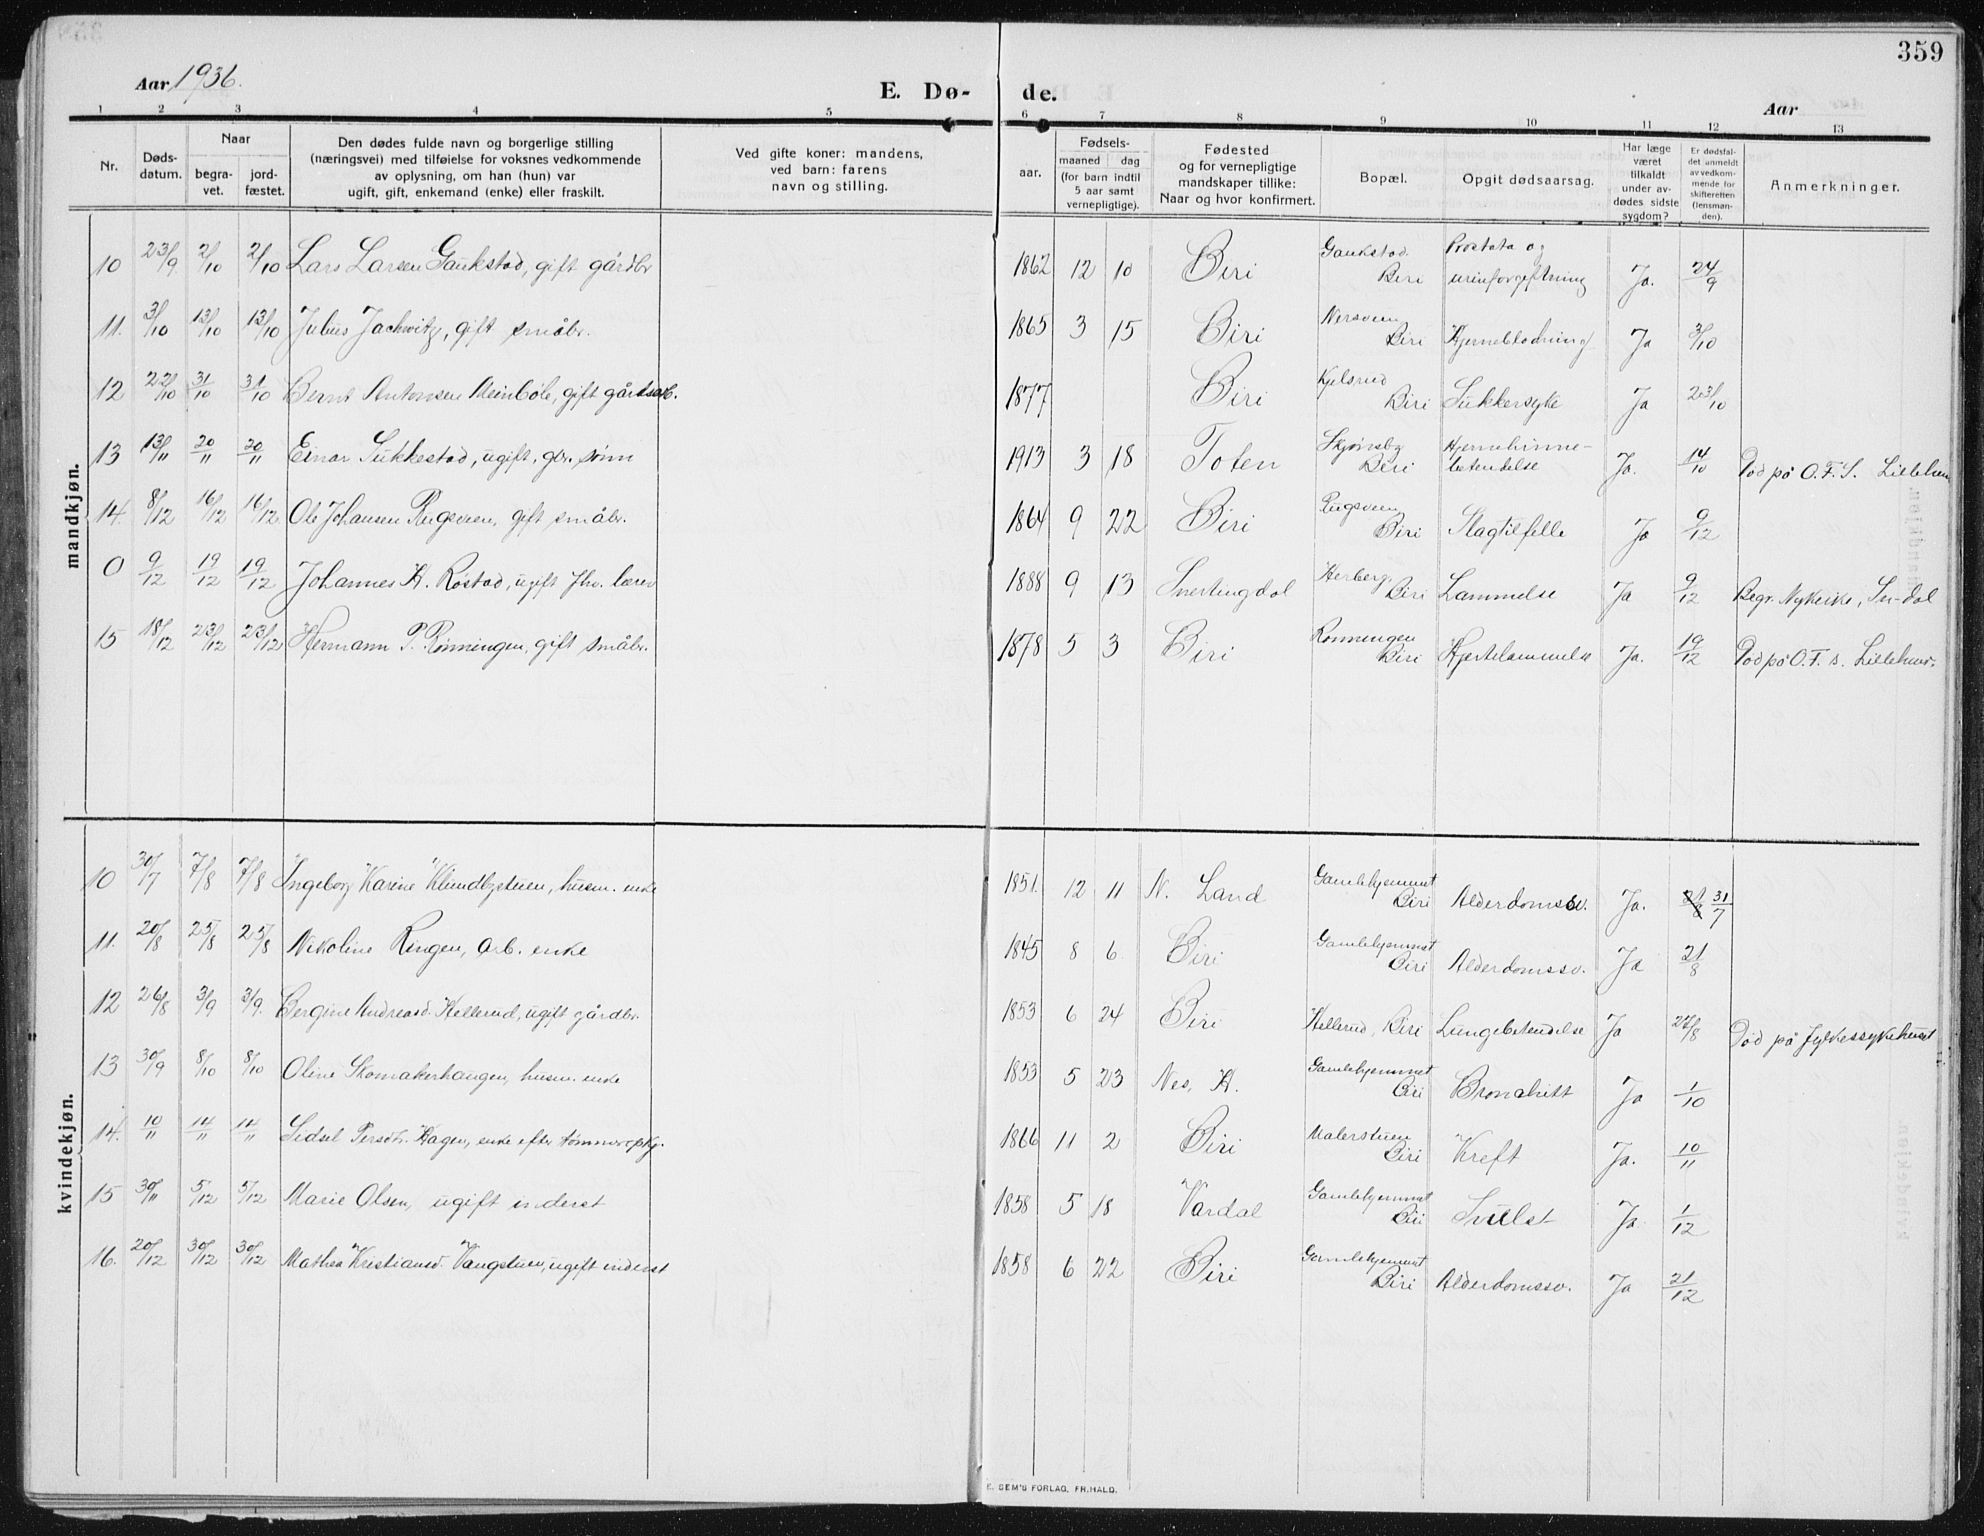 359
Aar 1936.
E. Dø- de.
Aar
1 2 3 4 5 6 7 8 9 10 11 12 13
Nr.
Døds-
datum.
Naar
begra-
vet.
jord-
fæstet.
Den dødes fulde navn og borgerlige stilling
(næringsvei) med tilføielse for voksnes vedkommende
av oplysning, om han (hun) var
ugift, gift, enkemand (enke) eller fraskilt.
Ved gifte koner: mandens,
ved barn: farens
navn og stilling.
Fødsels-
aar.
maaned dag
(for barn indtil
5 aar samt
vernepligtige).
Fødested
og for vernepligtige
mandskaper tillike:
Naar og hvor konfirmert.
Bopæl.
Opgit dødsaarsag.
Har læge
været
tilkaldt
under av-
dødes sidste
sygdom?
Er dødsfal-
det anmeldt
av vedkom-
mende for
skifteretten
(lensman-
den).
Anmerkninger.
mandkjøn.
10 23/9 2/10 2/10 Lars Larsen Gaukstad, gift gårdbr 1862 12 10 Biri Gaukstad Biri Prostata og urinforgiftning Ja. 24/9
11. 3/10 13/10 13/10 Julius Jachwitz, gift småbr. 1865 3 15 Biri Nersveen Biri Hjerneblødning Ja 3/10
12 22/10 31/10 31/10 Bernt Antonsen Meinbøle, gift 1877 Biri Kjelsrud Biri Sukkersyke Ja 23/10
13 13/11 20/11 20/11 Einar Sukkestad, ugift, gbr. sønn 1913 3 18 Toten Skjønsby Biri Hjernehinne-betendelse Ja. 14/10 Død på O.F.S. Lilleham
14. 8/12 16/12 16/12 Ole Johansen Rugsveen, gift småbr. 1864 9 22 Biri Rugsveen Biri Slagtilfelle Ja 9/12
0 9/12 19/12 19/12 Johannes H. Røstad, ugift fhv. lærer 1888 9 13 Snertingdal Herberg, Biri Lammelse Ja 9/12 Begr. Nykirke, Sn-dal
15 18/12 23/12 23/12 Hermann P. Rønningen, gift småbr. 1878 5 3 Biri Rønningen Biri Hjertelammelse Ja. 19/12 Død på O.F.s. Lilleham.
kvindekjøn.
10 30/7 7/8 7/8 Ingeborg Karine Klundbystuen, husm. enke 1851. 12 11 N. Land Gamlehjemmet Biri Alderdomssv. Ja. 31/7
11. 20/8 25/8 25/8 Nikoline Ringen, arb. enke 1845 8 6. Biri Gamlehjemmet Biri Alderdomssv. Ja 21/8
12 26/8 3/9 3/9. Bergine Andreasd. Hellerud, ugift gårdbr. 1853 6 24 Biri Hellerud, Biri Lungebetendelse Ja 27/8 Død på Fylkessykehuset
13 30/9 8/10 8/10 Oline Skomakerhaugen, husm. enke 1853 5 23 Nes, H. Gamlehjemmet Biri Bronchitt Ja 1/10
14. 10/11 14/11 14/11 Sidsel Persdtr. Hagen, enke efter tømmeropkj. 1866 11 2 Biri Malerstuen Biri Kreft Ja. 10/11
15 30/11 5/12 5/12 Marie Olsen, ugift inderst 1858 5 18 Vardal Gamlehjemmet Biri Svulst Ja 1/12
16. 20/12 30/12 30/12 Mathea Kristiansd. Vangstuen, ugift inderst 1858 6 22 Biri Gamlehjemmet Biri Alderdomssv. Ja 21/12
E. SEM'S FORLAG, FR.HALD.